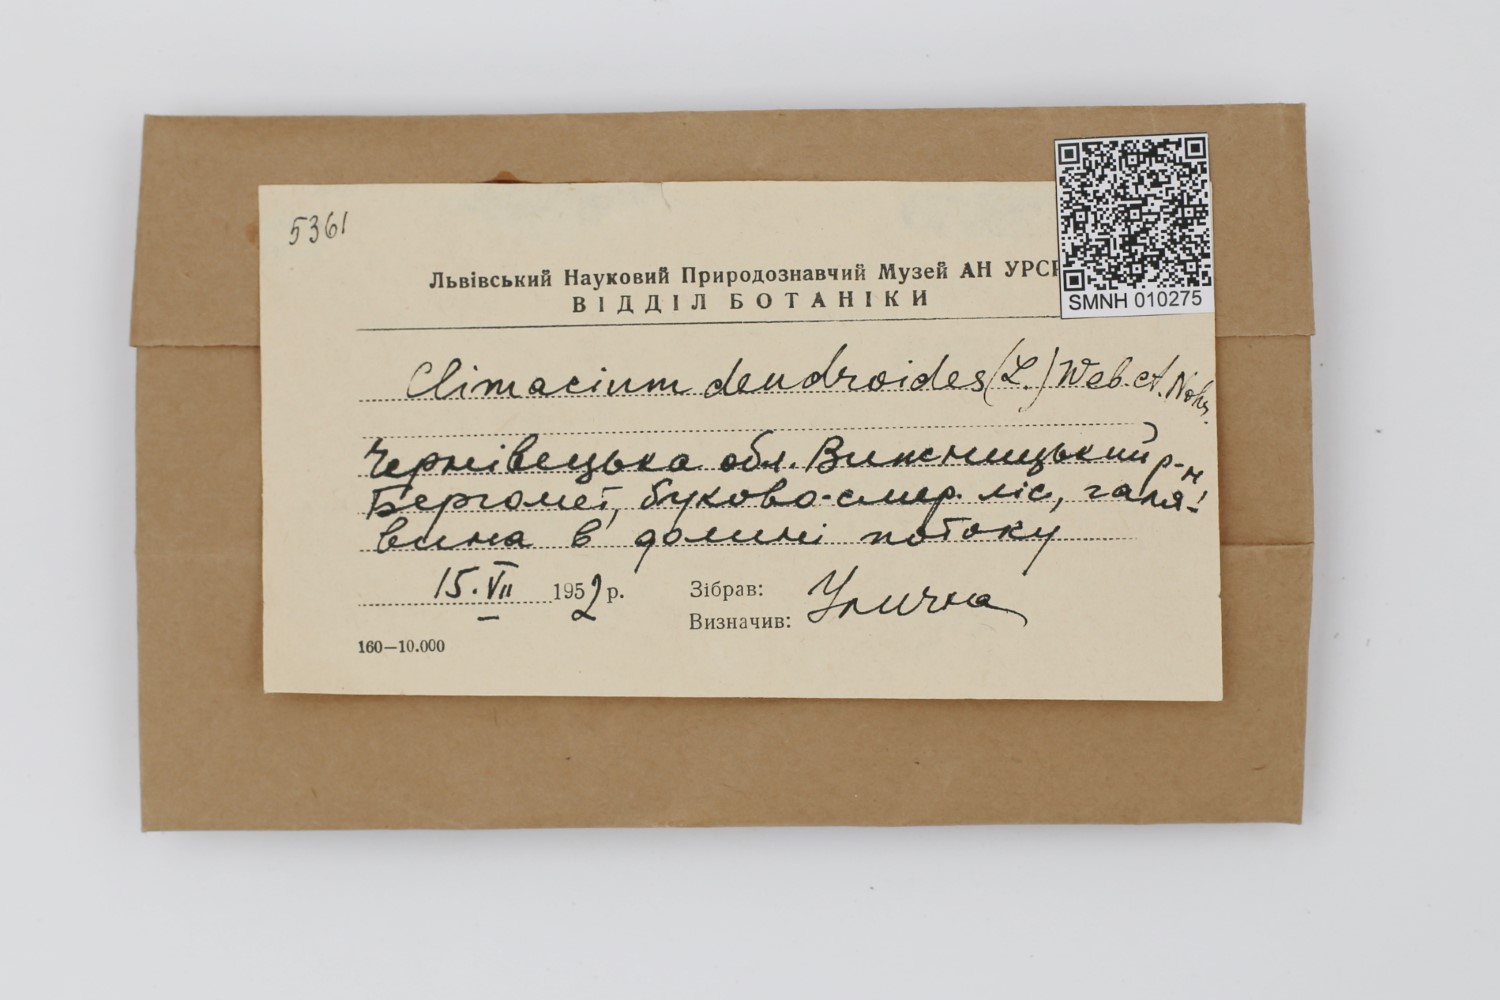 5361
Львівський Науковий Природознавчий Музей АН УРСР
ВІДДІЛ БОТАНІКИ
SMNH 010275
Climacium dendroides (L.) Web. et. Mohr.
Чернівецька обл. Вижницький р-н
Бергомет, буково-смер. ліс, галя-
вина в долині потоку
15. VII 1952 р.
Зібрав: Улична
Визначив:
160—10.000